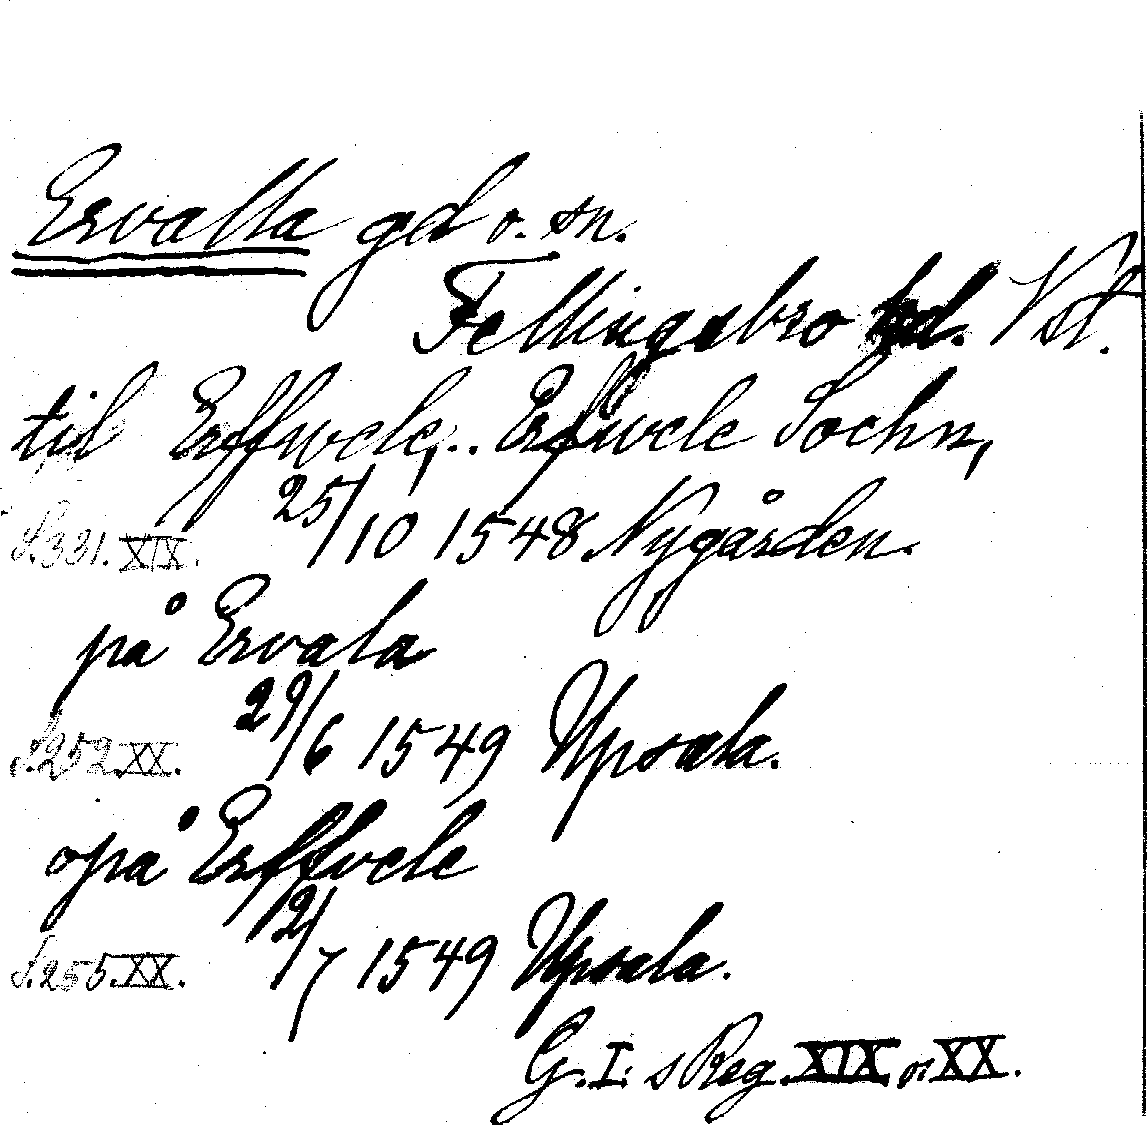 Ervalla gd o. sn.
Fellingsbro hd. Vstl.
til Erffwele,.. Erfwele Sochn,
S.331.XIX. 25/10 1548. Nygården.
på Ervala
S.252.XX. 29/6 1549 Upsala.
opå Erffvele
S.255.XX. 2/7 1549 Upsala.
G.I:s Reg. XIX o. XX.